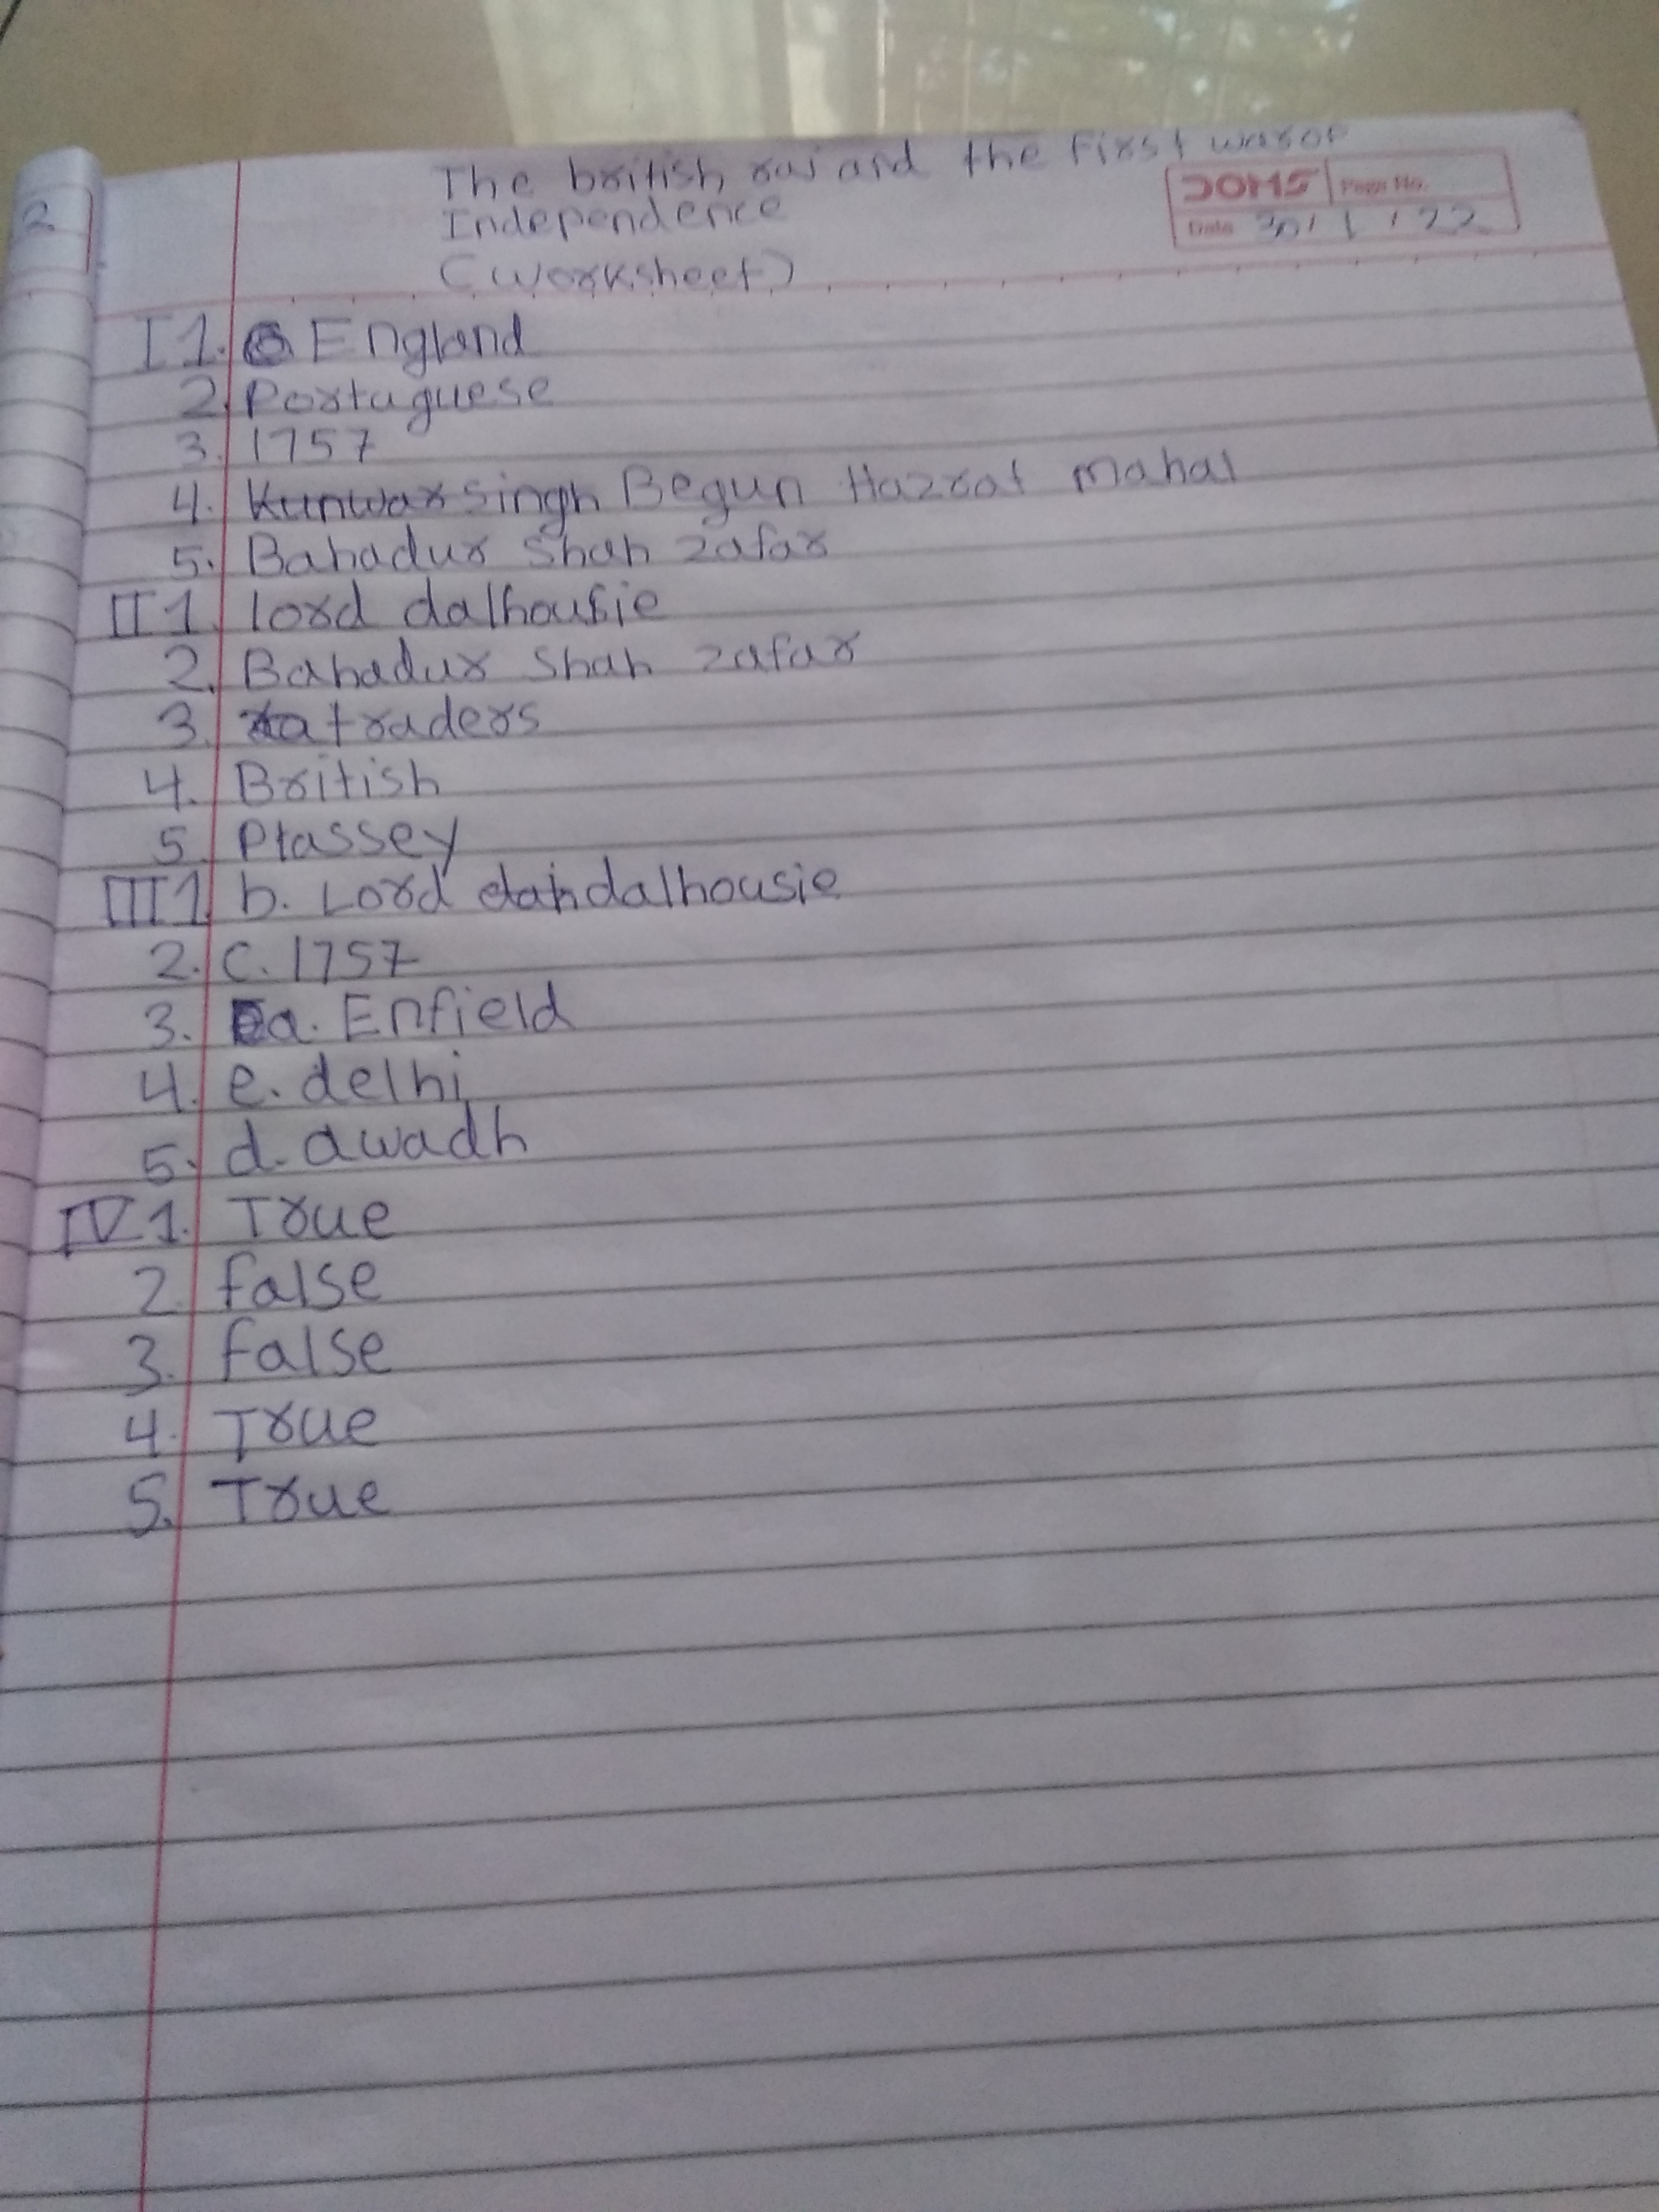 2
The british raj and the first war of
Independence
(Worksheet)
DOMS Page No.
Date 30/1/22
I 1. England
2. Portuguese
3. 1757
4. Kunwar singh Begun Hazrat mahal
5. Bahadur Shah zafar
II 1. lord dalhousie
2. Bahadur Shah zafar
3. traders
4. British
5. Plassey
III 1. b. Lord dalhousie
2. c. 1757
3. a. Enfield
4. e. delhi
5. d. awadh
IV 1. True
2. false
3. false
4. True
5. True